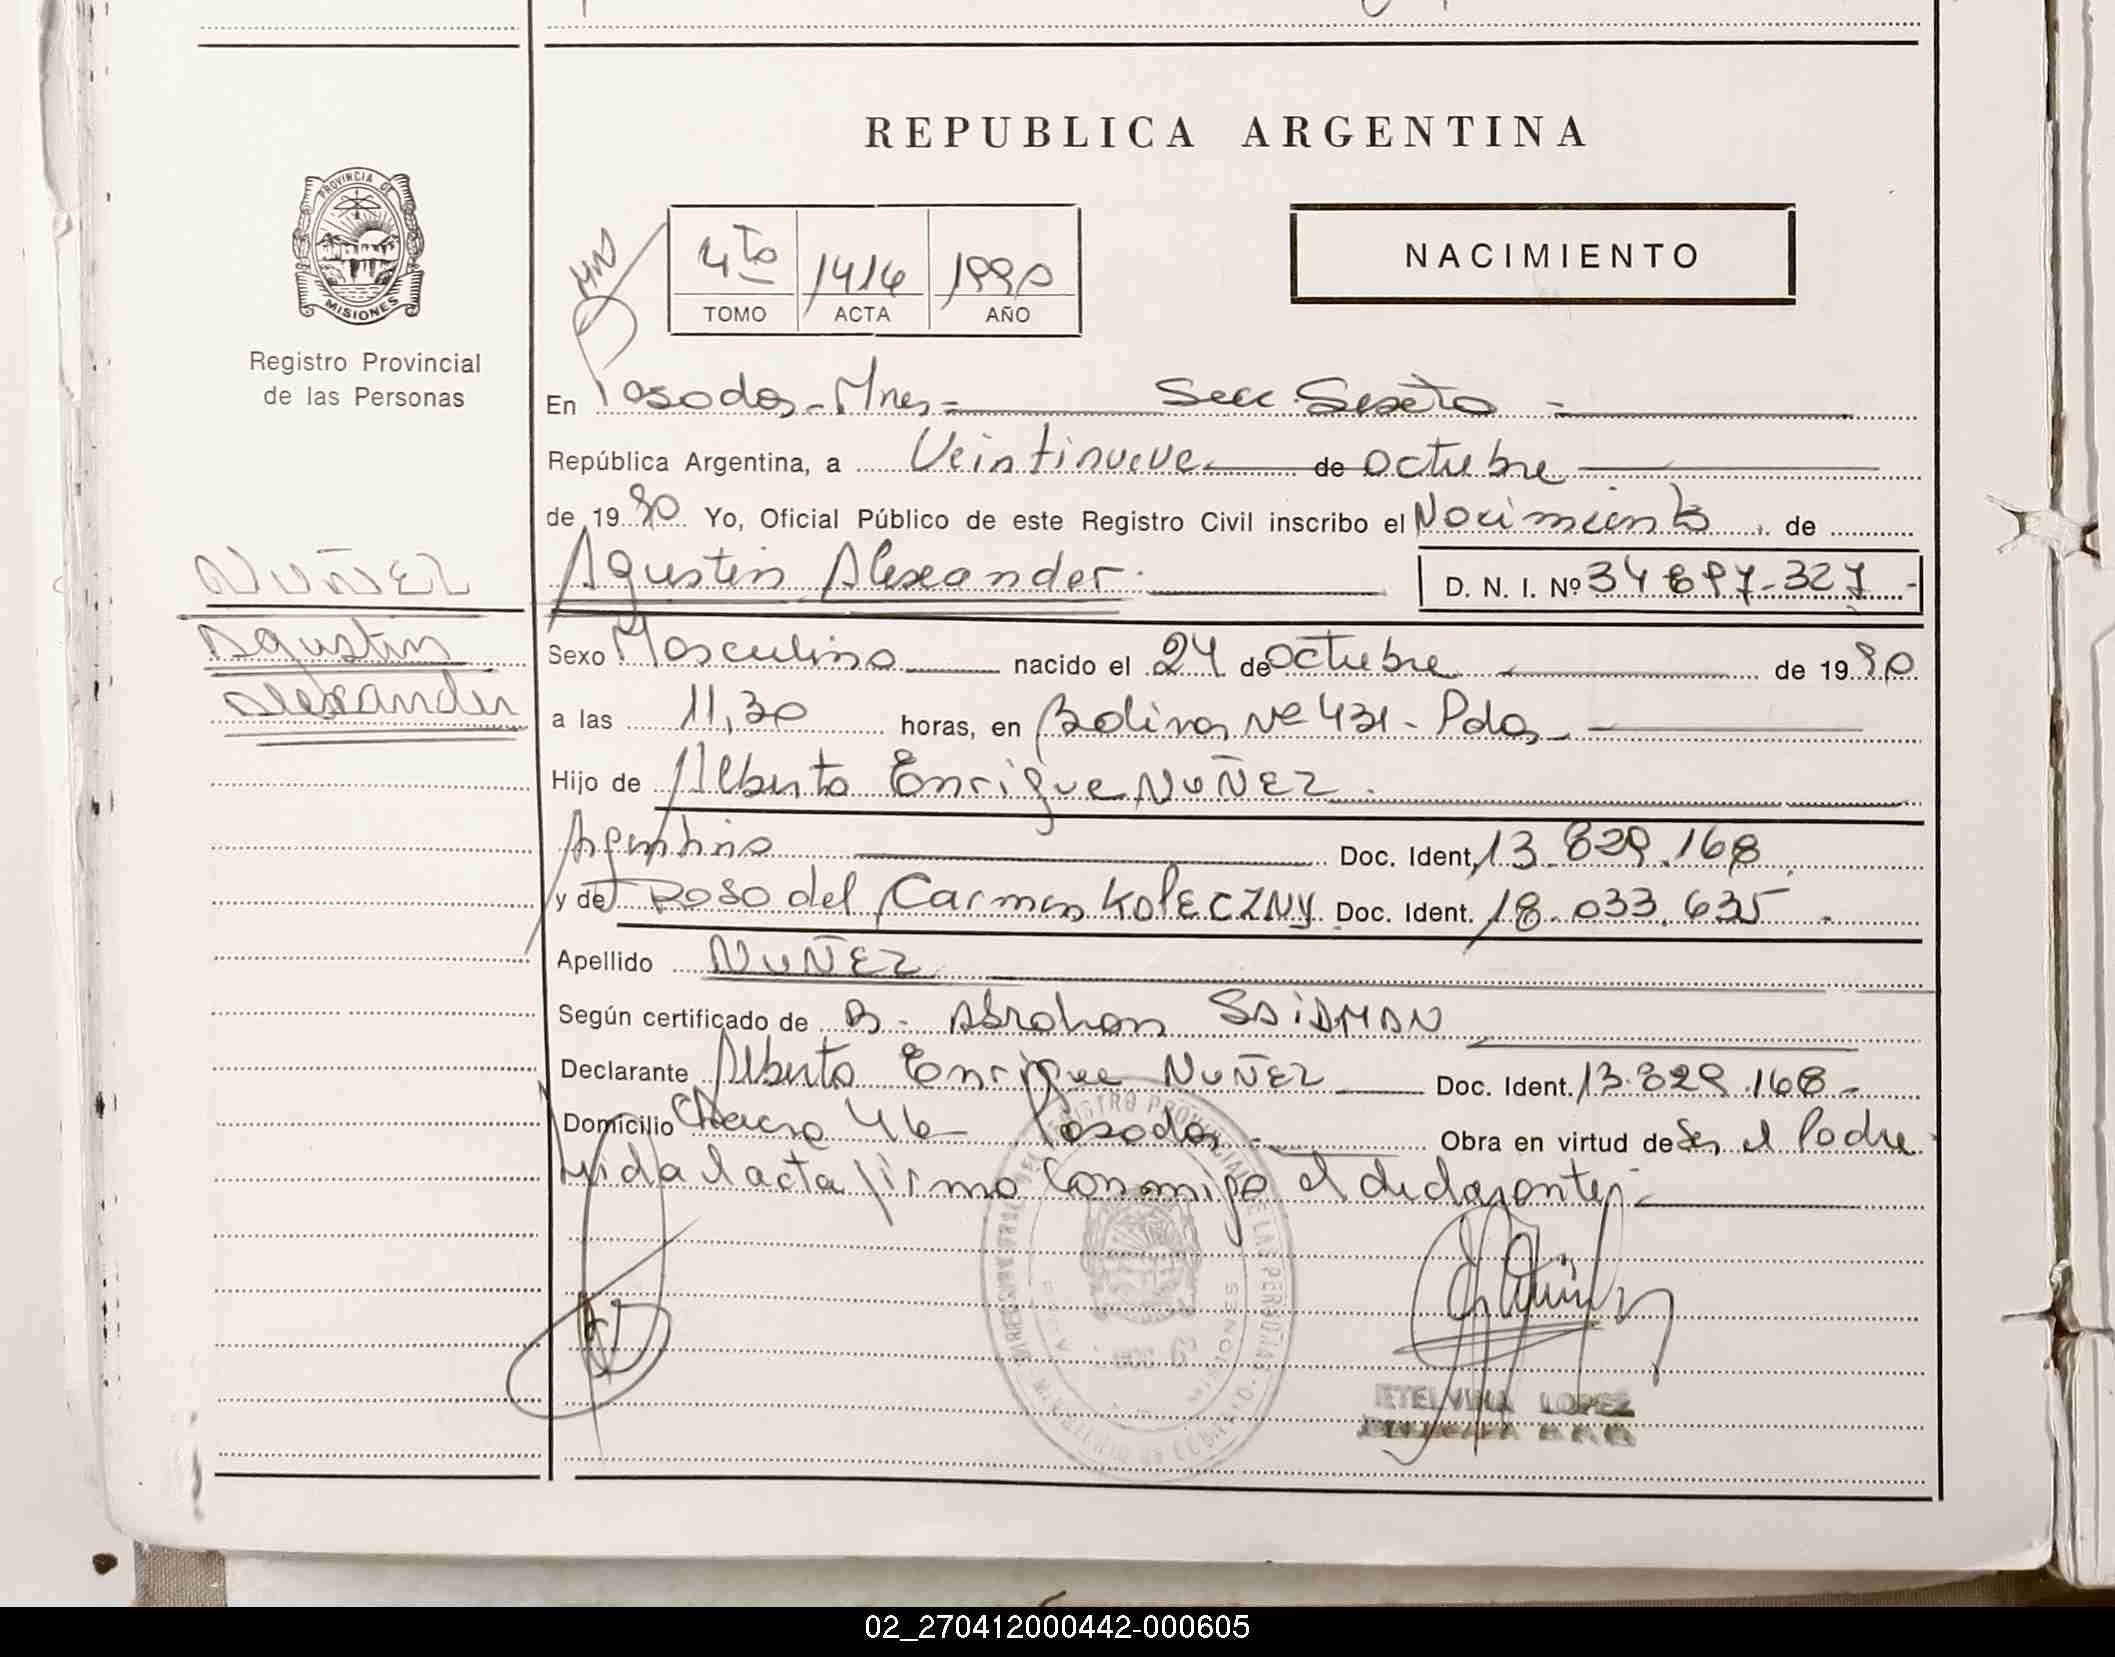 REPUBLICA ARGENTINA
PROVINCIA DE
MISIONES
Registro Provincial
de las Personas
4to 1414 1990
TOMO ACTA AÑO
NACIMIENTO
En Posadas - Mnes - Secc. Sexta -
República Argentina, a Veintinueve de octubre
de 1990 Yo, Oficial Público de este Registro Civil inscribo el Nacimiento de
NUÑEZ
Agustin
Alexander
Agustin Alexander. D. N. I. Nº 34.897-327-
Sexo Masculino nacido el 24 de octubre de 1990
a las 11,30 horas, en Bolivar Nº 431 - Pdas -
Hijo de Alberto Enrique NUÑEZ.
Argentino Doc. Ident. 13.829.168.
y de Rosa del Carmen KOLECZNY Doc. Ident. 18.033.635.
Apellido NUÑEZ
Según certificado de Abrahan SAIDMAN
Declarante Alberto Enrique NUÑEZ Doc. Ident. 13.829.168-
Domicilio Chacra 46 Posadas - Obra en virtud de Ser el Padre
Leida el acta firma conmigo el declarante;-
ETELVINA LOPEZ
02_270412000442-000605